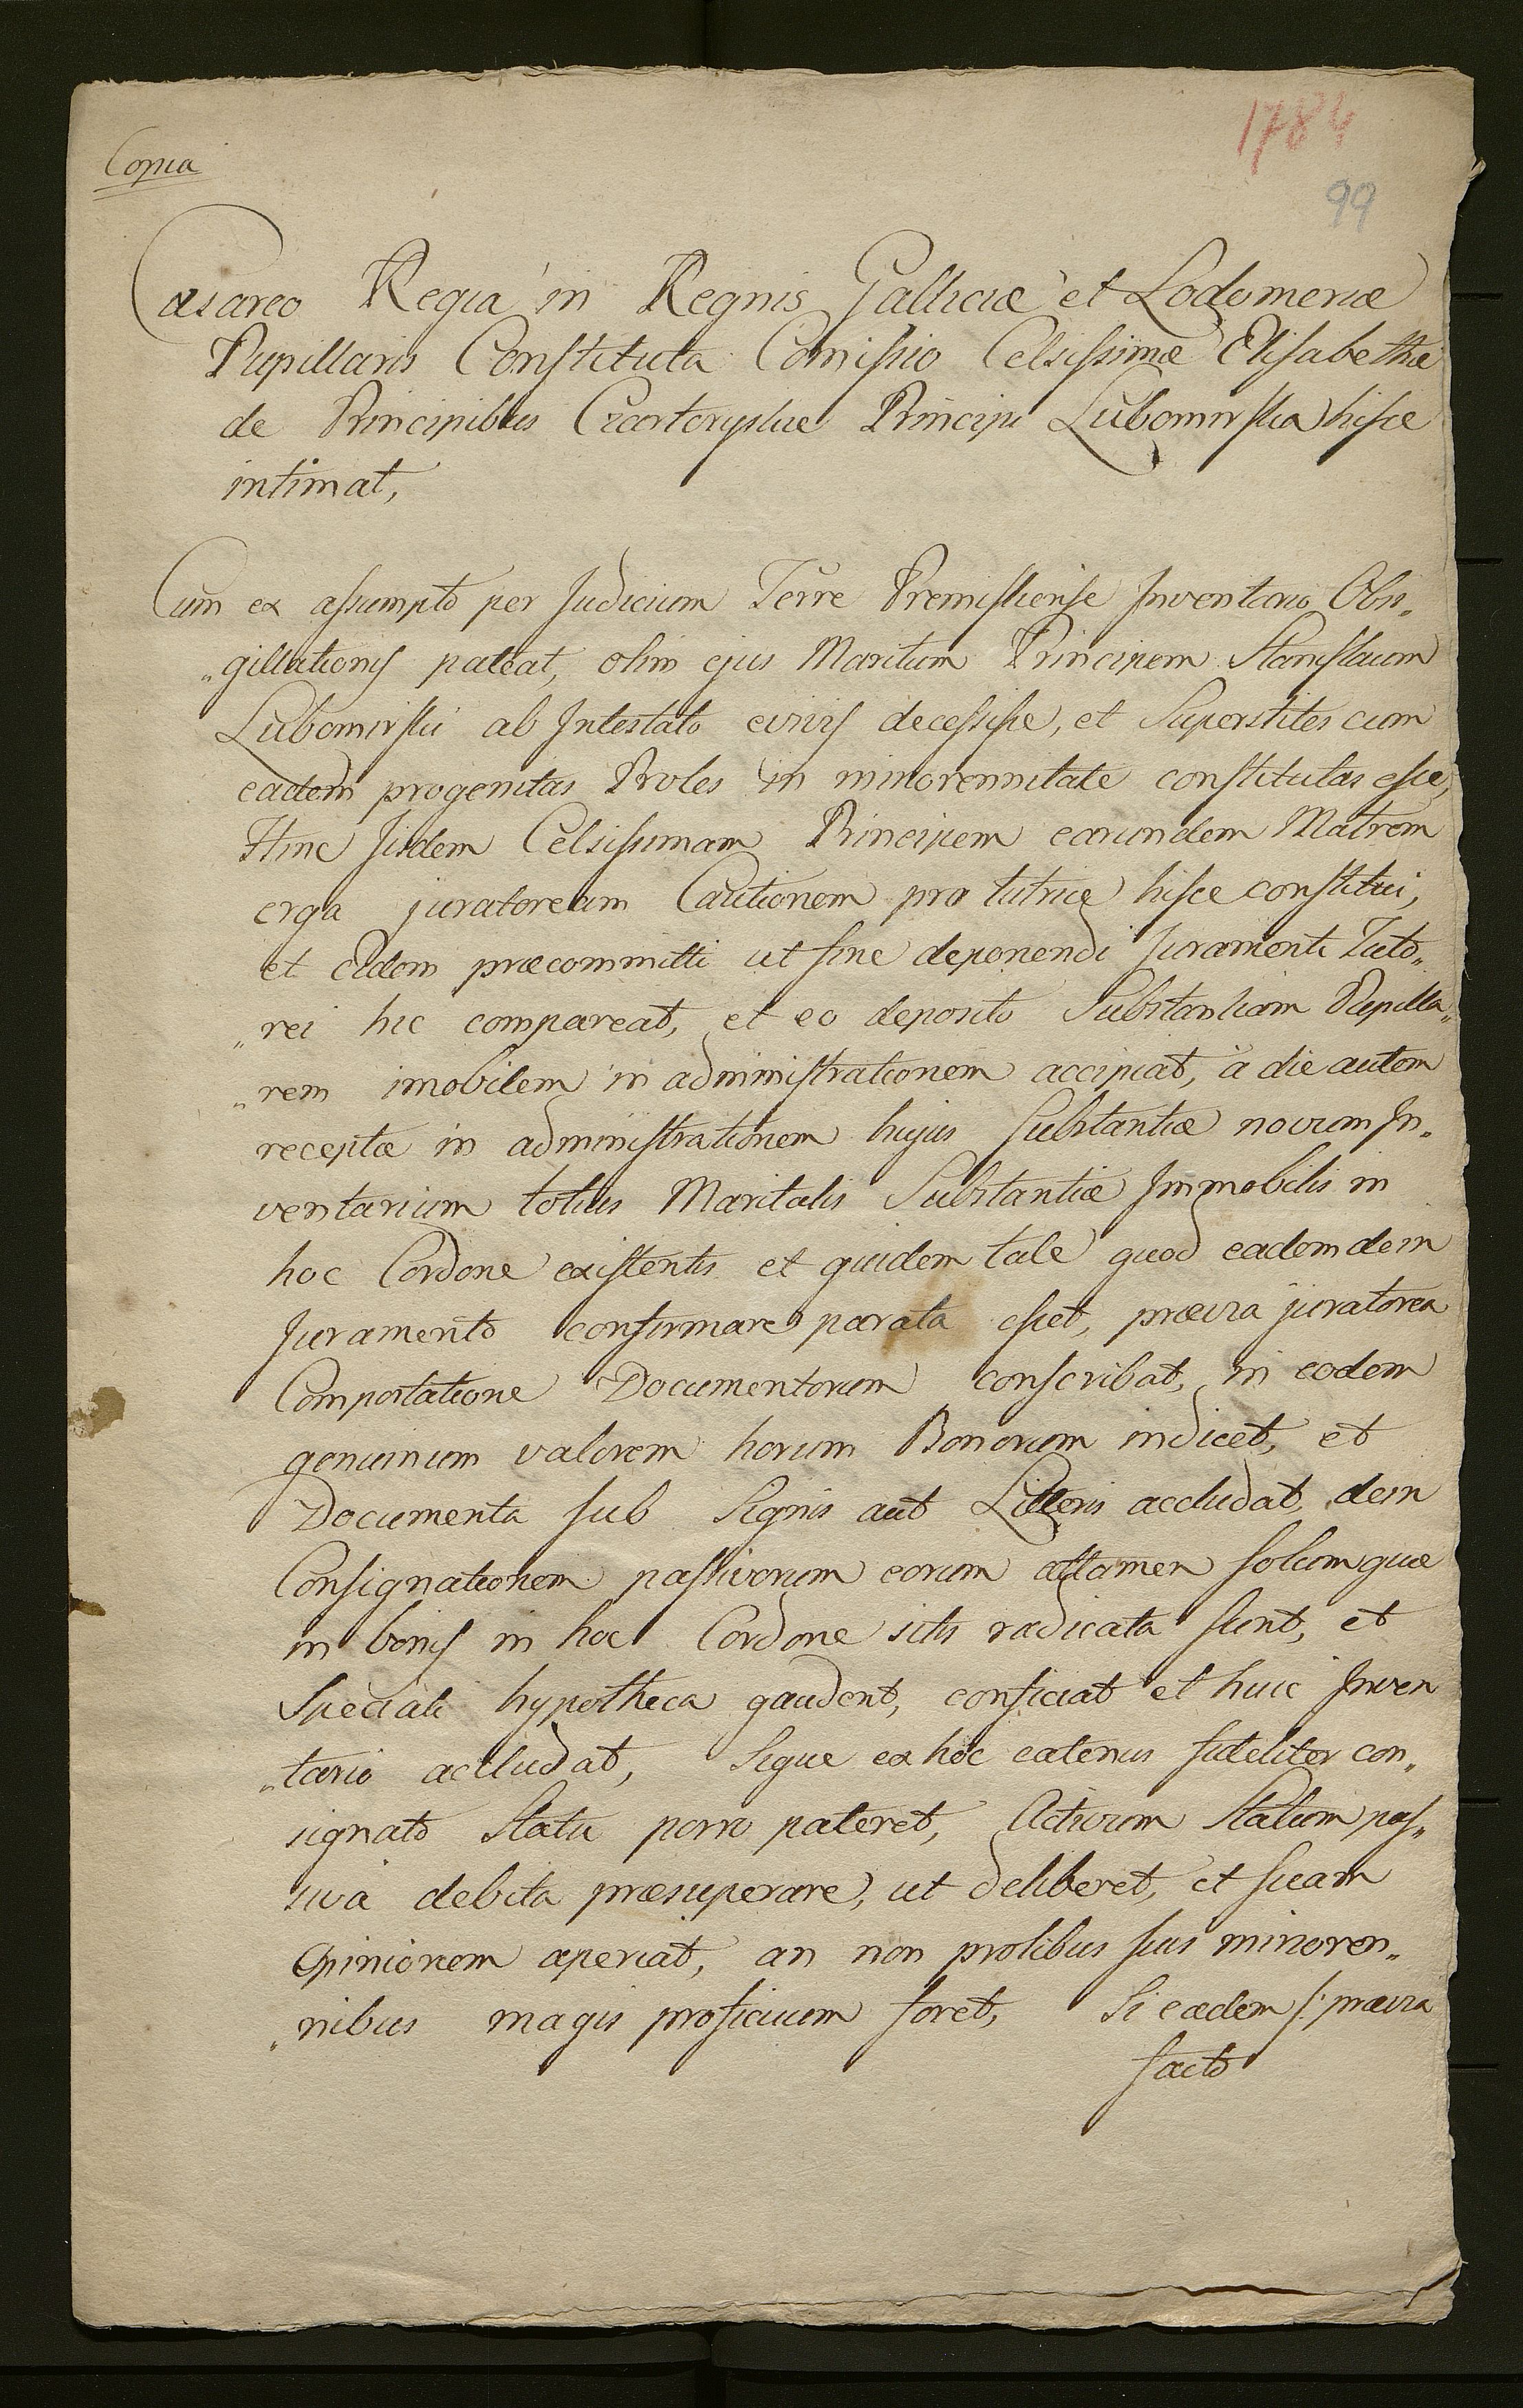 1784
Copia
99
Cæsareo Regia in Regnis Galliciæ et Lodomeriæ
Pupillaris Constituta Comissio Celsissimæ Elisabethæ
de Principibus Czartoryskie Principi Lubomirska hisce
intimat,
Cum ex assumpto per Judicium Terre Premisliense Inventario Obsi„
„gillationis pateat, olim ejus Maritum Principem Stanislaum
Lubomirski ab Intestato e vivis decessisse, et Superstites cum
eadem progenitas Proles in minorennitate constitutas esse,
Hinc Iisdem Celsissimam Principem earundem Matrem
erga juratoream Cautionem pro tutrice hisce constitui,
et Eidem præcommitti ut fine deponendi Juramenti Tuto„
„rei hic compareat, et eo deposito Substantiam Pupilla„
„rem imobilem in administrationem accipiat, à die autem
receptæ in administrationem hujus Substantiæ novum In„
ventarium totius Maritalis Substantiæ Immobilis in
hoc Cordone existentis et quidem tale quod eadem dein
Juramento confirmare parata esset, prævia juratorea
Comportatione Documentorum conscribat, in eodem
genuinum valorem horum Bonorum indicet, et
Documenta sub Signis aut Litteris accludat, dein
Consignationem passivorum eorum attamen solum quæ
in bonis in hoc Cordone sitis radicata sunt, et
Speciali hypotheca gaudent, conficiat et huic Inven
„tario accludat, Sique ex hoc eatenus fideliter con„
signato Statu porro pateret, Activum Statum pas„
siva debita præsuperare, ut deliberet, et suam
Opinionem aperiat, an non prolibus suis minoren„
„nibus magis proficuum foret, Si eadem /: prævia
facto